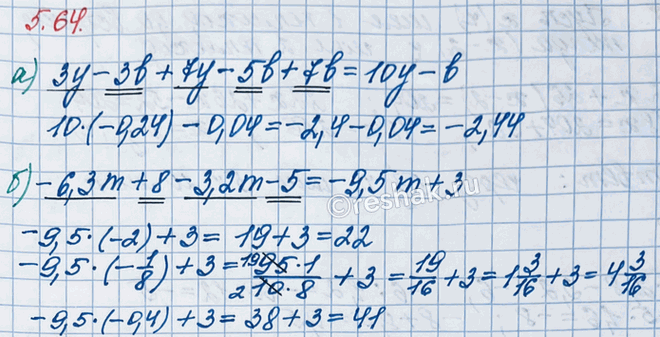 5.64.
а) 3y - 3b + 7y - 5b + 7b = 10y - b
10·(-0,24) - 0,04 = -2,4 - 0,04 = -2,44
б) -6,3m + 8 - 3,2m - 5 = -9,5m + 3
-9,5·(-2) + 3 = 19 + 3 = 22
-9,5·(-1/8) + 3 = 19 95·1 / 2 10·8 + 3 = 19/16 + 3 = 1 3/16 + 3 = 4 3/16
-9,5·(-0,4) + 3 = 38 + 3 = 41
©reshak.ru